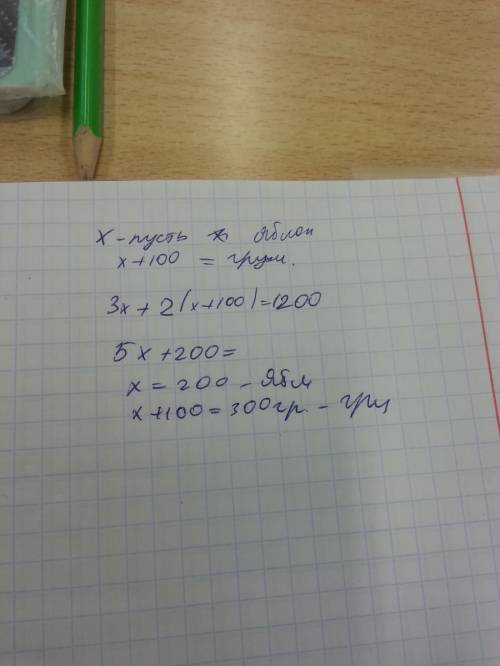 х - пусть х яблок
х+100 = груш.
3х + 2(х+100)=1200
5х+200=
х = 200 - Ябл
х+100=300гр. - гру